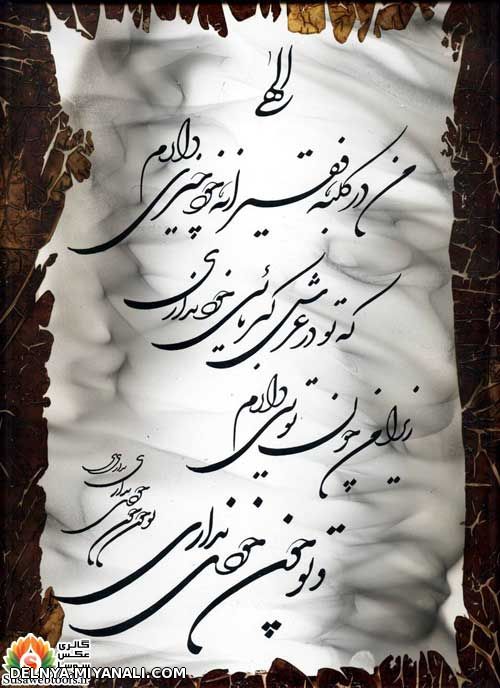 الهی
من در کلبه فقیرانه خود چیزی دارم
که تو در عرش کبریائی خود نداری
زیرا من چون تویی دارم
و تو چون خودی نداری
تو چون خودی نداری نداری
گالری
عکس
سوسا
Susawebtools.ir
DELNYA.MIYANALI.COM